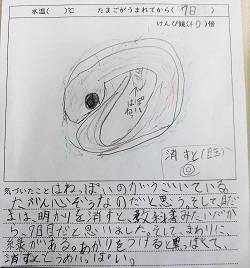 水温( )℃ たまごがうまれてから( 7日 )
けんび鏡(40)倍
はねっぽい
消すと(白玉)
気づいたこと はねっぽいのがくっいている。
たぶん心ぞうなのだと思う。そして、目だ
まは、明かりを消すと、教科書みたいだか
ら、7日目だと思いました。そして、まわりに
線がある。あかりをつけると黒っぽくて、
消すととうめいっぽい。